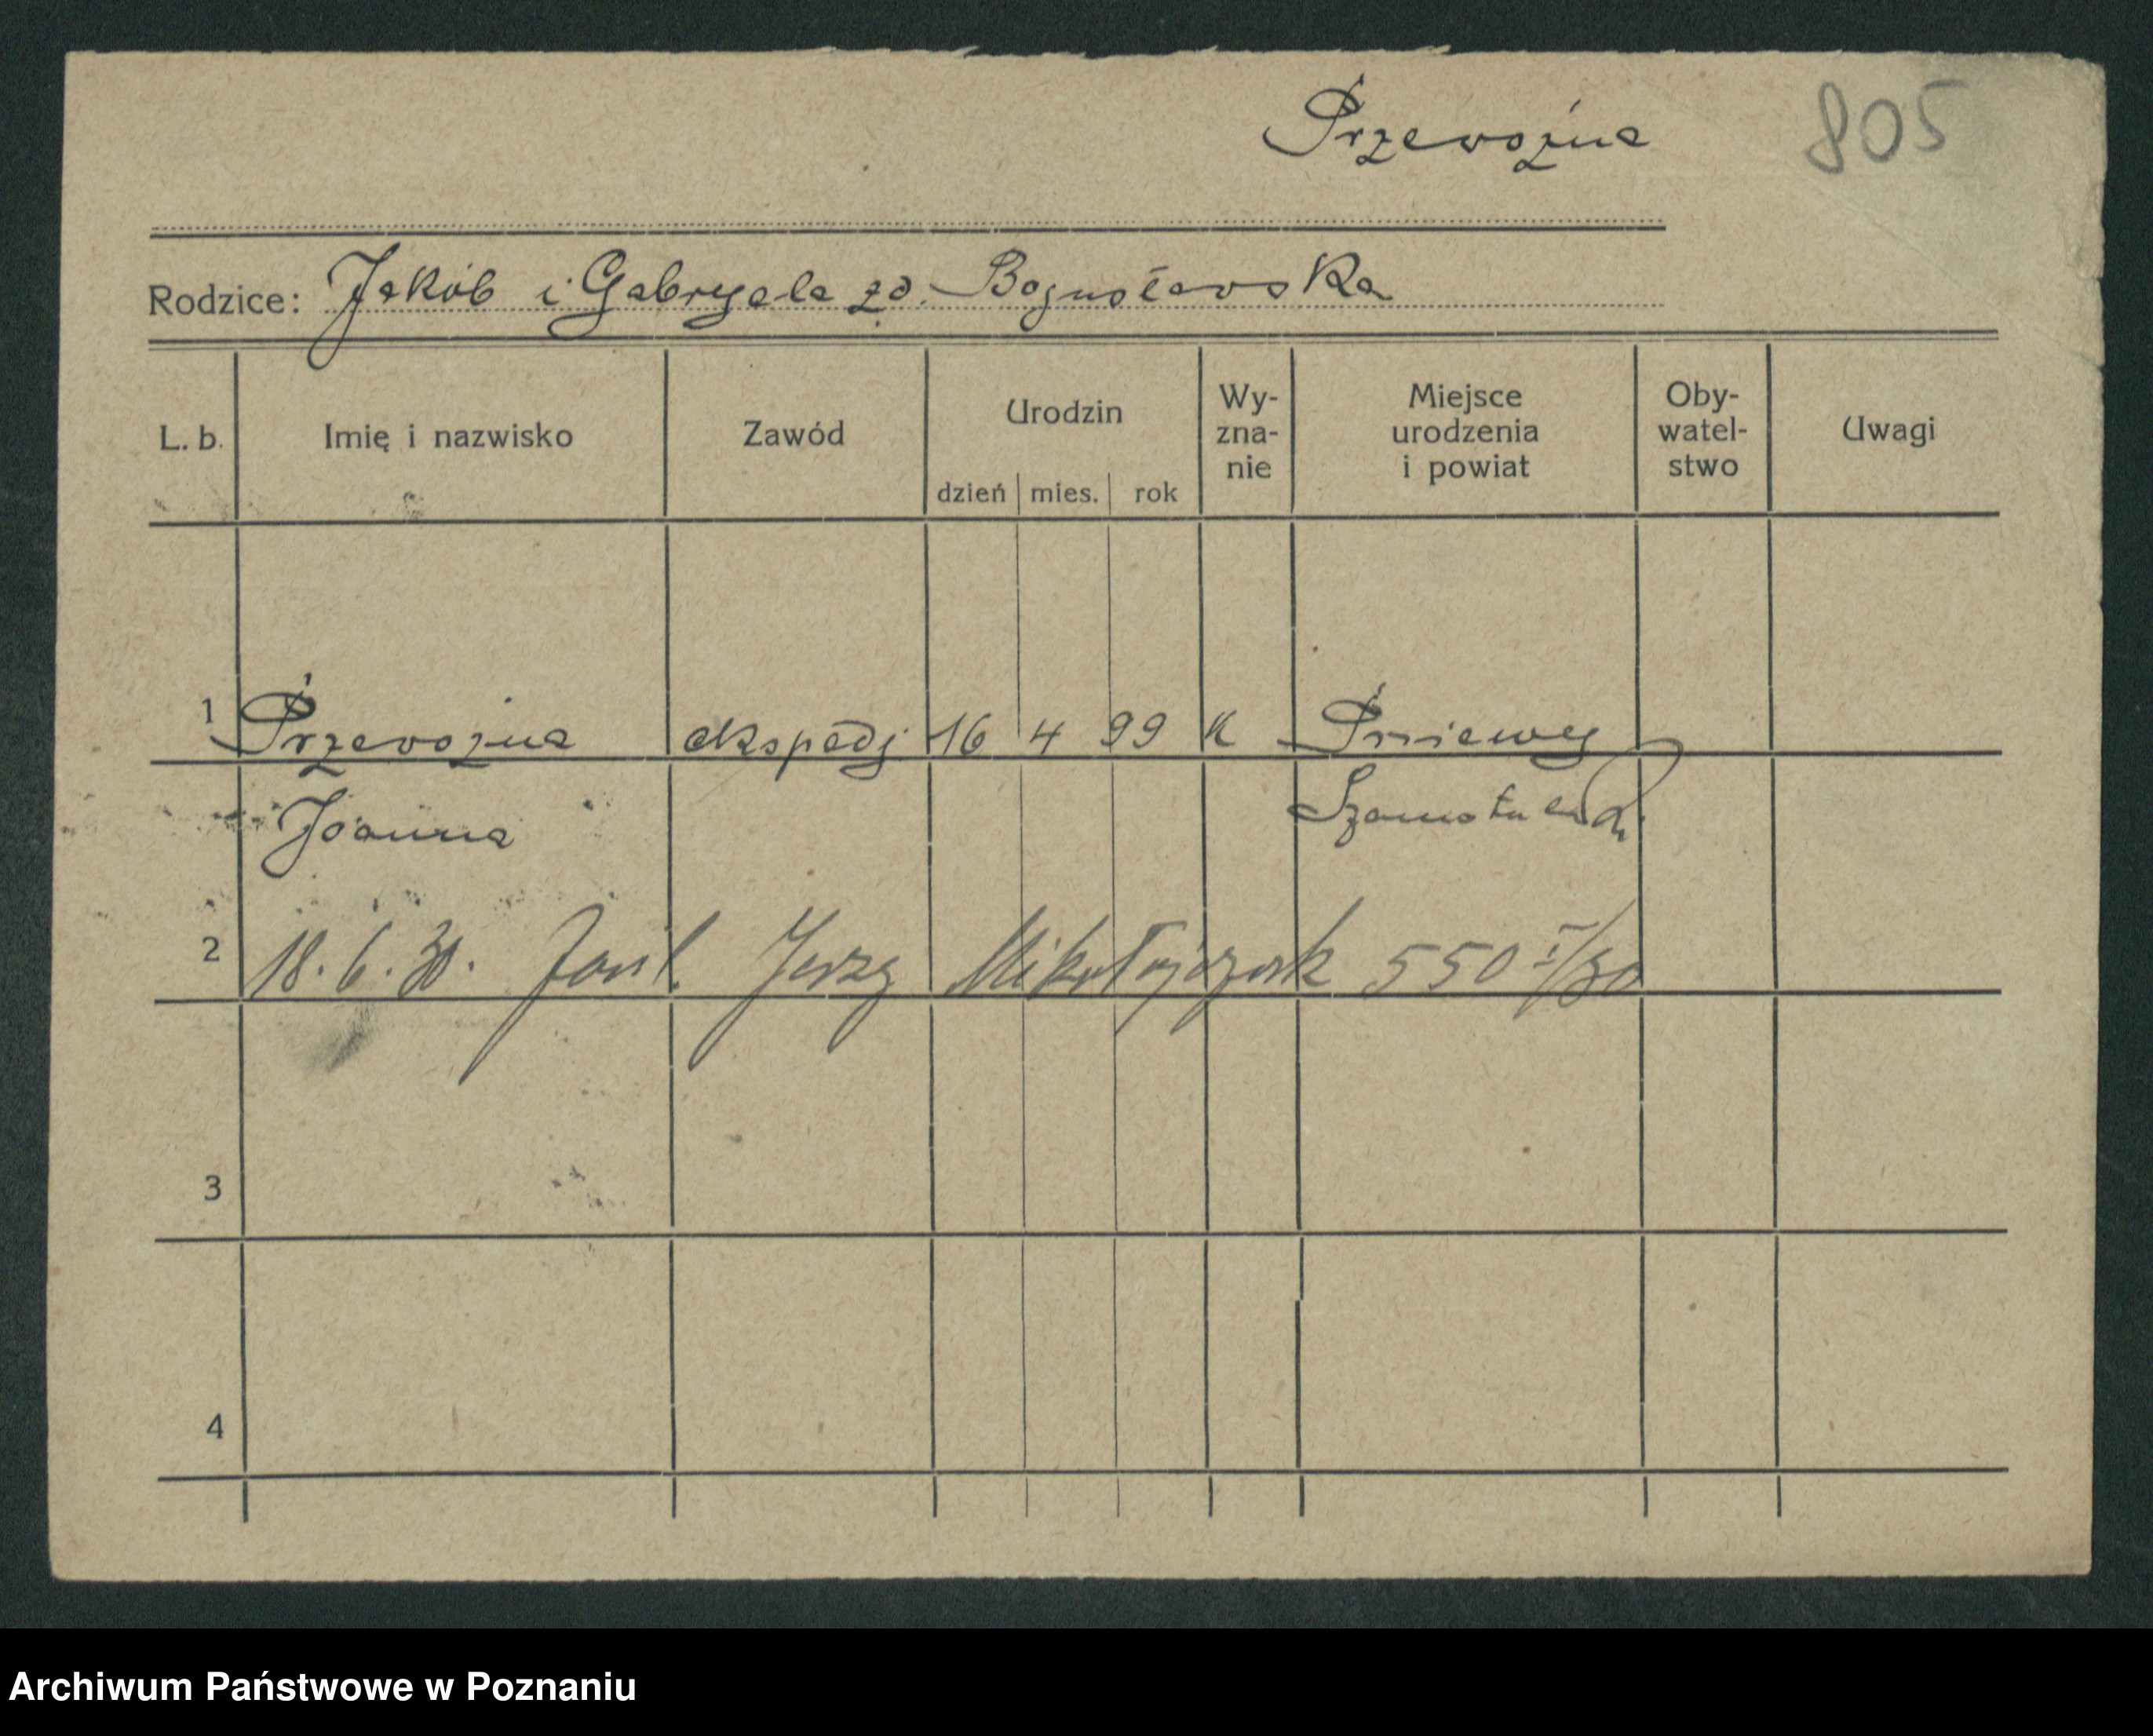 Przewoźna 805
Rodzice: Jakób i Gabryela zd. Bogusławska
L. b. Imię i nazwisko Zawód Urodzin Wy- Miejsce Oby- Uwagi
zna- urodzenia watel-
nie i powiat stwo
dzień mies. rok
1 Przewoźna ekspedj 16 4 99 K Pniewy
Joanna Szamotulski
2 18.6.30. Jerzy Mikołajczak 550 I/30
3
4
Archiwum Państwowe w Poznaniu